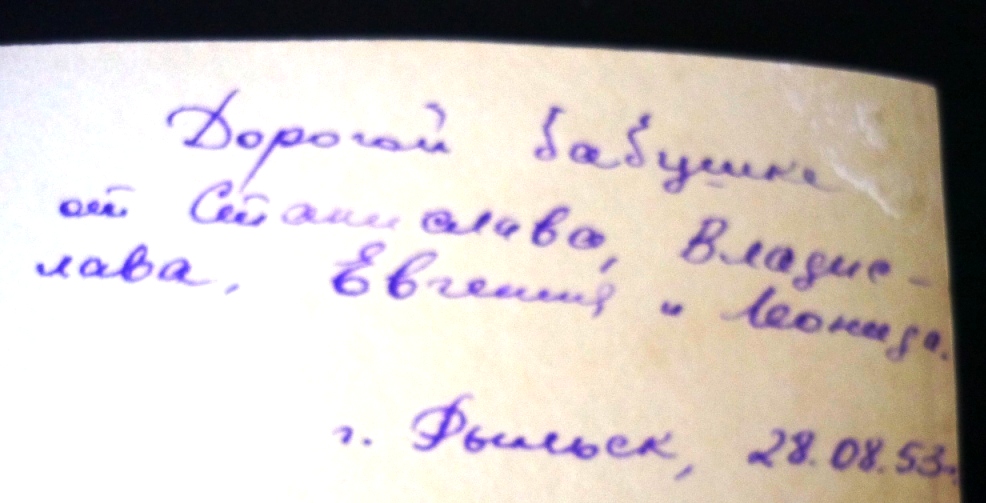 Дорогой бабушке
от Станислава, Владис-
лава, Евгения и Леонида.
г. Рыльск, 28.08.53.